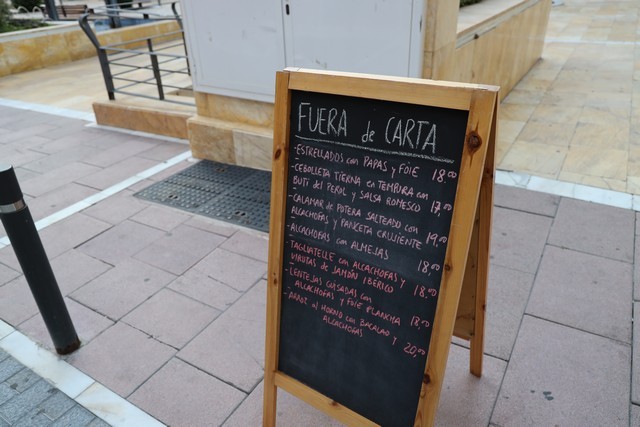 FUERA de CARTA
-ESTRELLADOS con PAPAS y FOIE 18,00
-CEBOLLETA TIERNA en TEMPURA con
BUTI del PEROL y SALSA ROMESCO 17,00
-CALAMAR de POTERA SALTEADO con
ALCACHOFAS y PANCETA CRUJIENTE 19,00
-ALCACHOFAS con ALMEJAS 18,00
-TAGLIATELLE con ALCACHOFAS y
VIRUTAS de JAMÓN IBERICO 18,00
-LENTEJAS GUISADAS con
ALCACHOFAS y FOIE PLANCHA 18,00
-ARROZ al HORNO con BACALAO y
ALCACHOFAS 20,00